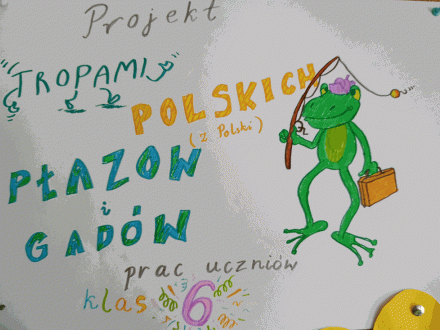 Projekt
TROPAMI
POLSKICH
(z Polski)
PŁAZOW
i
GADÓW
prac uczniów
klas 6